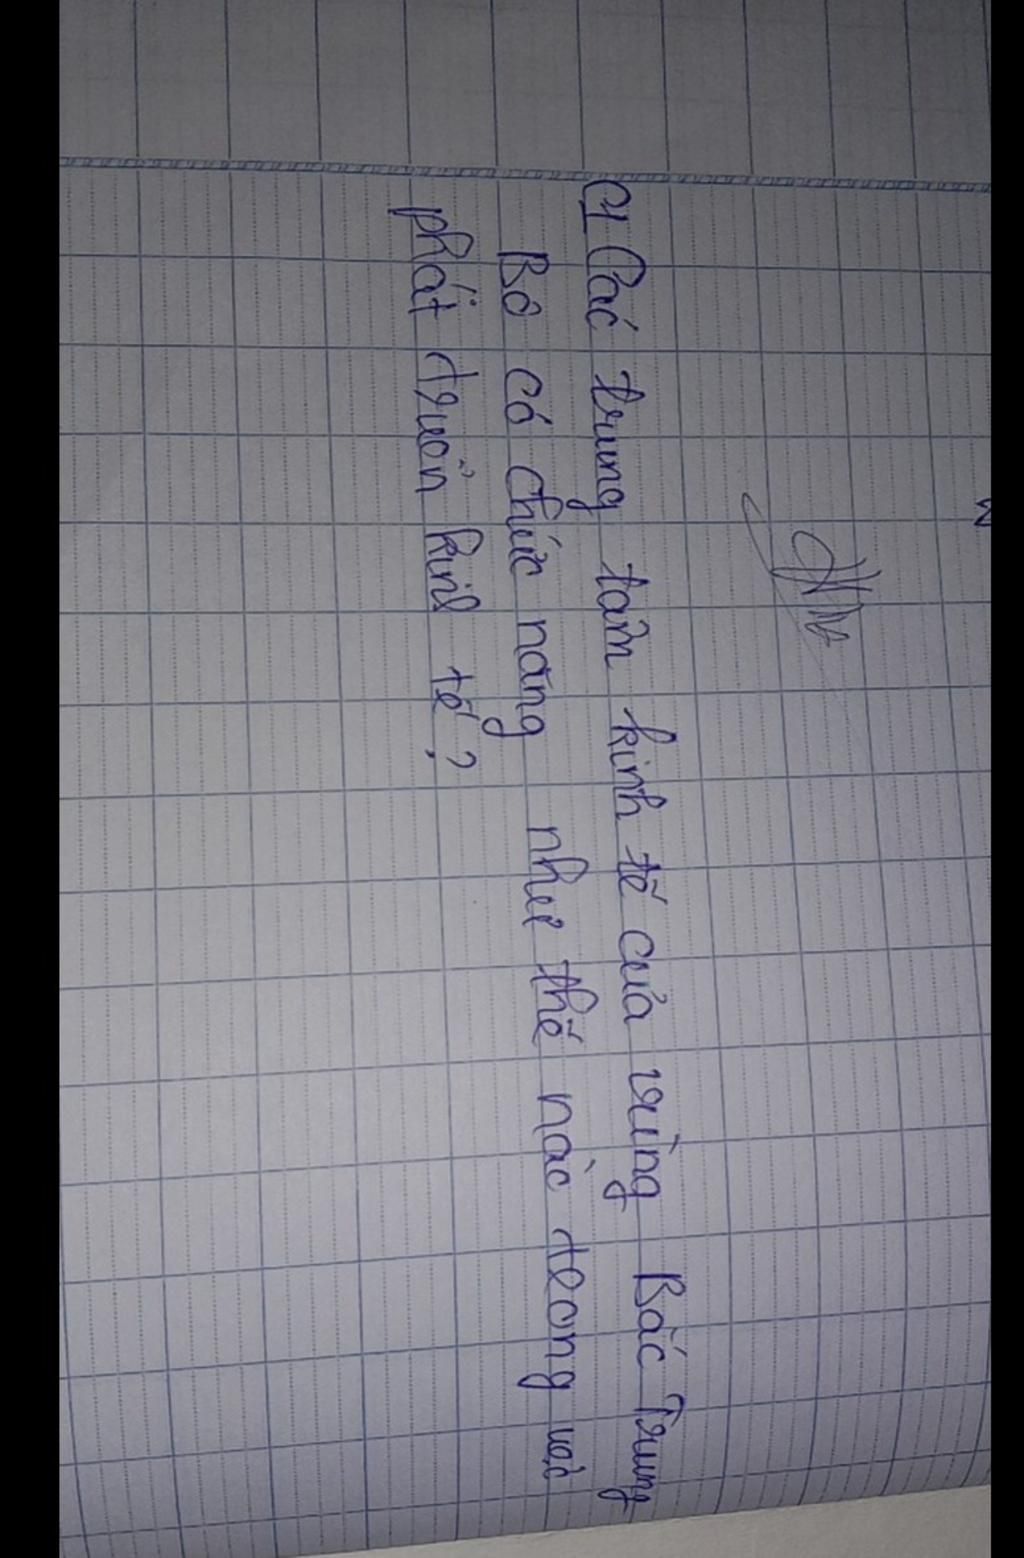 C1 Các trung tâm kinh tế của vùng Bắc Trung
Bộ có chức năng như thế nào trong việc
phát triển kinh tế?